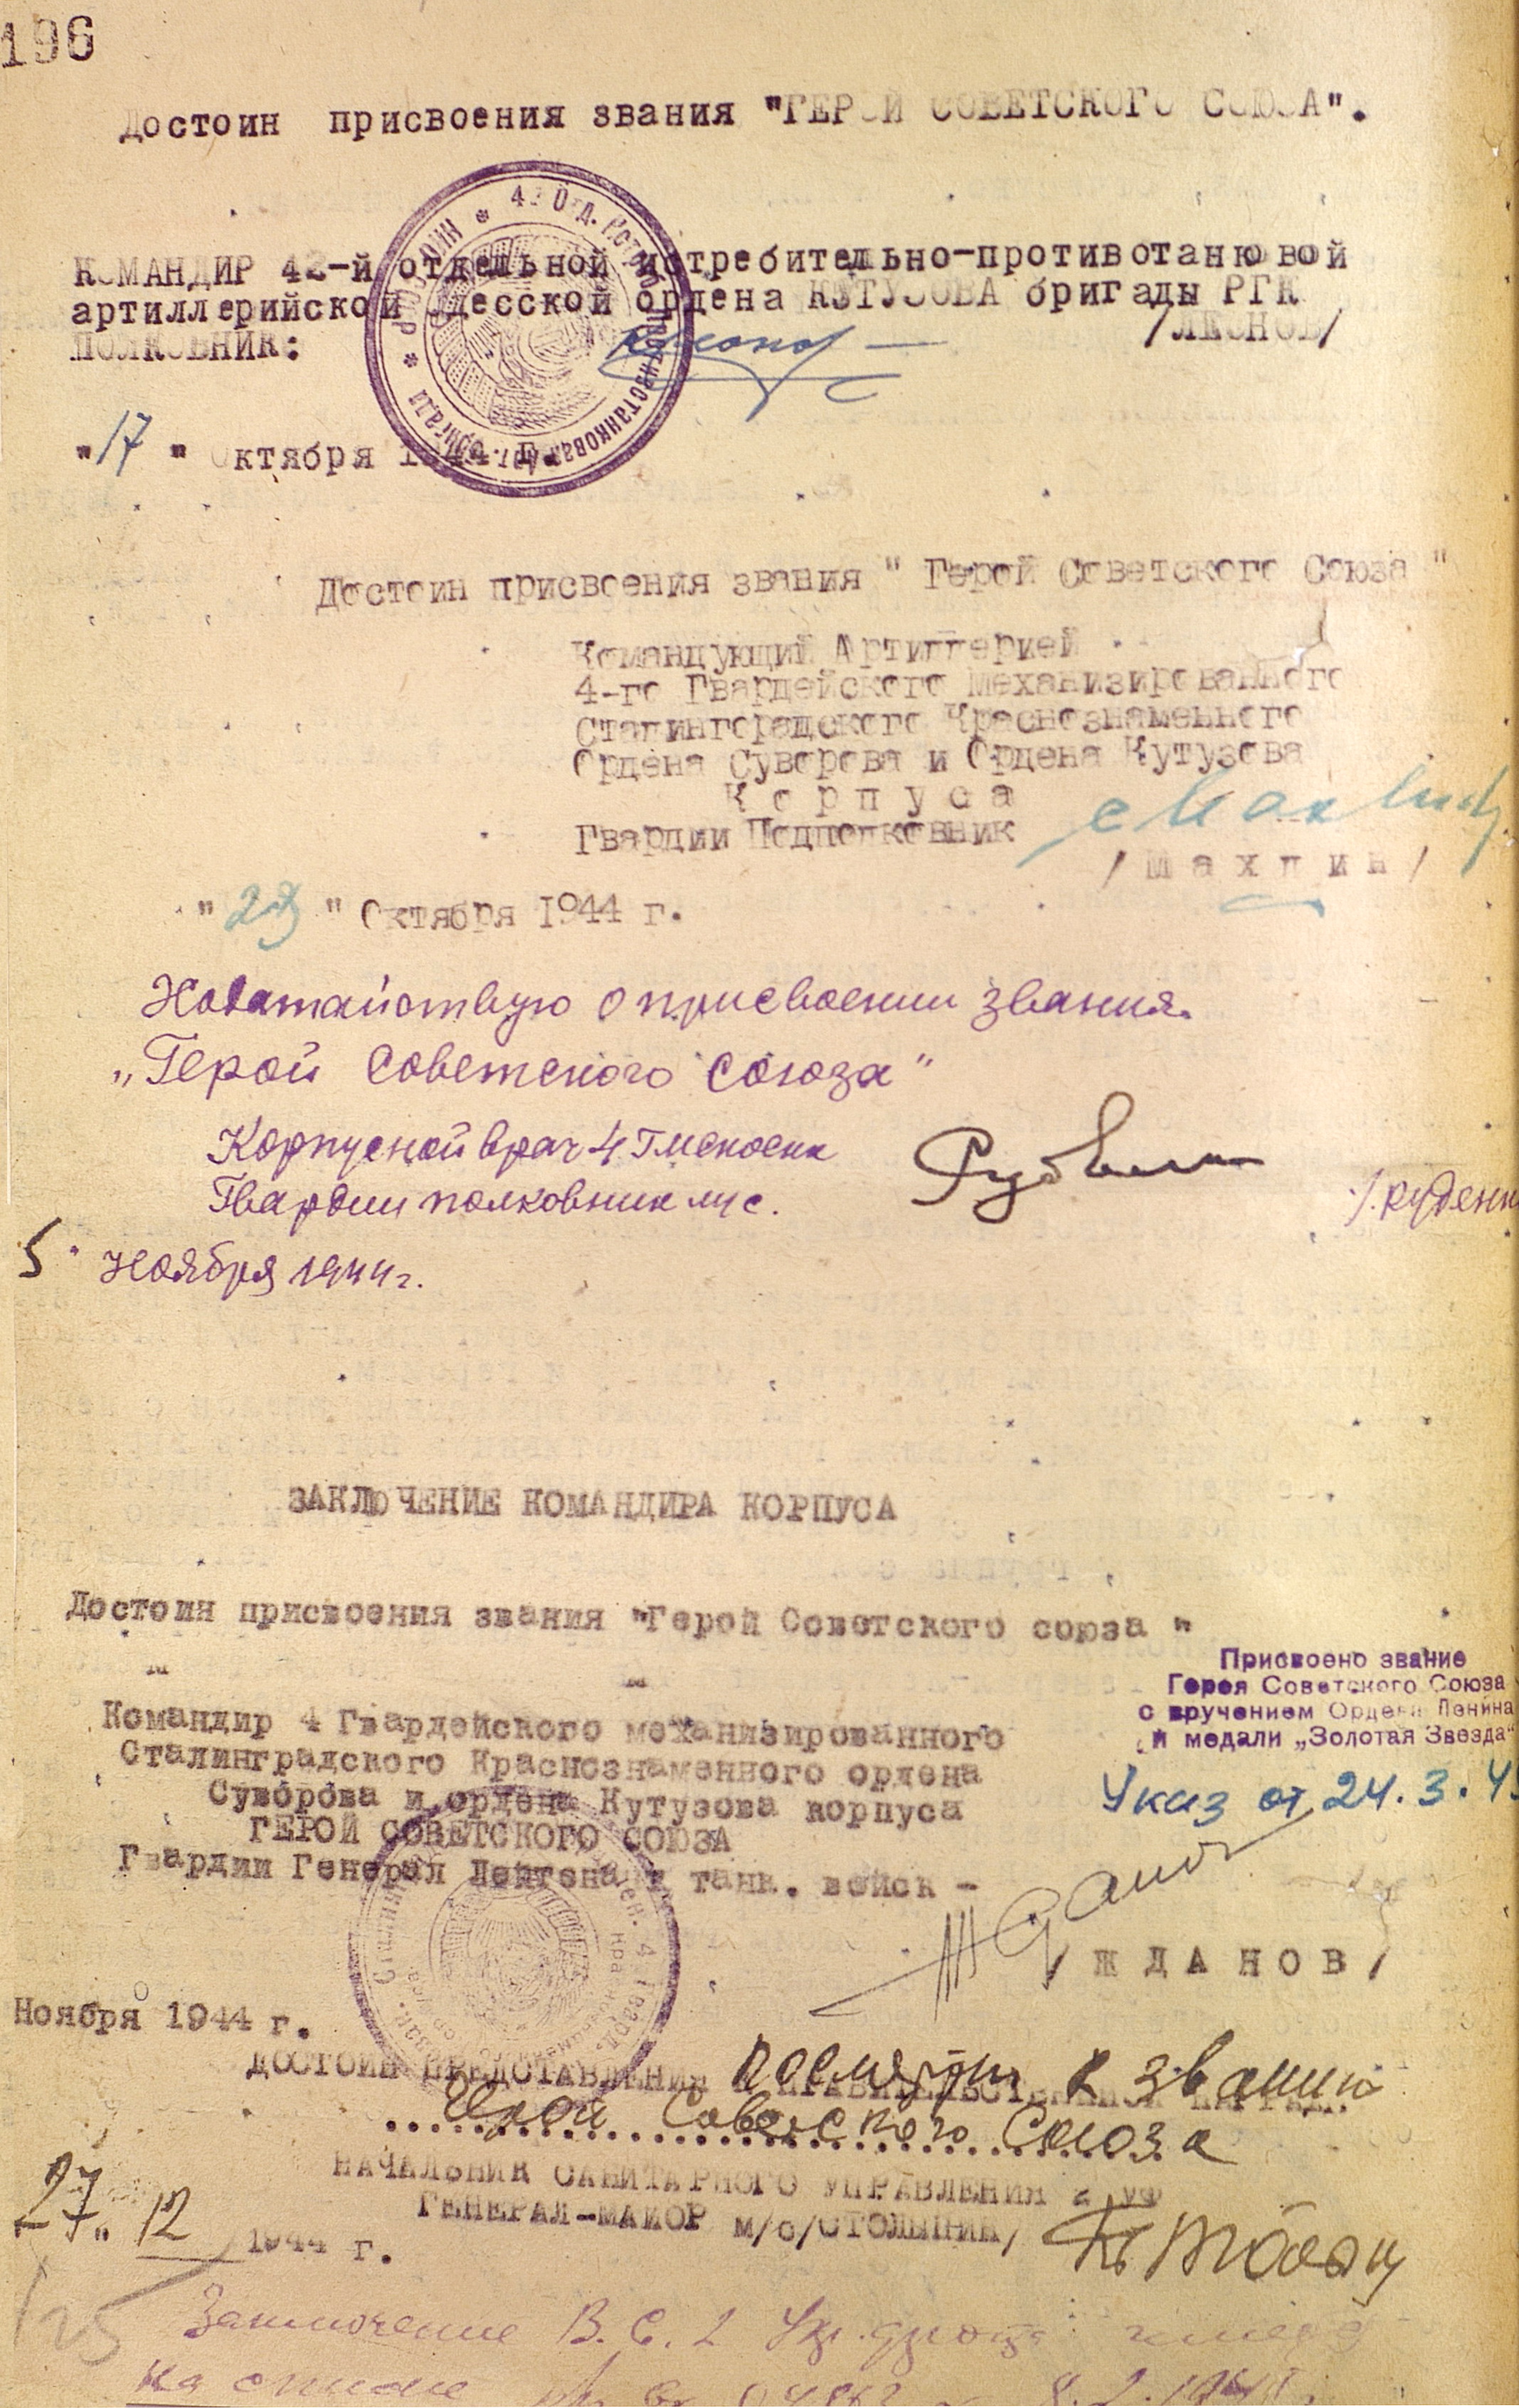 196
Достоин присвоения звания "ГЕРОЙ СОВЕТСКОГО СОЮЗА".
КОМАНДИР 42-й отдельной истребительно-противотанковой
артиллерийской Одесской ордена КУТУЗОВА бригады РГК
ПОЛКОВНИК: /ЛЕОНОВ/
"17" Октября 1944 г.
Достоин присвоения звания " Герой Советского Союза "
Командующий Артиллерией
4-го Гвардейского Механизированного
Сталинградского Краснознаменного
Ордена Суворова и Ордена Кутузова
Корпуса
Гвардии Подполковник
/Махлин/
" " Октября 1944 г.
Ходатайствую о присвоении звания
„Герой Советского Союза"
Корпусной врач 4 Гмехсск
Гвардии полковник м/с. /.Руденк
5. Ноября 1944 г.
ЗАКЛЮЧЕНИЕ КОМАНДИРА КОРПУСА
Достоин присвоения звания "Герой Советского союза "
Присвоено звание
Героя Советского Союза
с вручением Ордена Ленина
и медали „Золотая Звезда"
Указ от 24.3.4
Командир 4 Гвардейского механизированного
Сталинградского Краснознаменного ордена
Суворова и ордена Кутузова корпуса
ГЕРОЙ СОВЕТСКОГО СОЮЗА
Гвардии Генерал Лейтенант танк. войск -
/ЖДАНОВ/
Ноября 1944 г.
ДОСТОИН ПРЕДСТАВЛЕНИЯ К ПРАВИТЕЛЬСТВЕННОЙ НАГРАДЕ
посмертно к званию
Герой Советского Союза
НАЧАЛЬНИК САНИТАРНОГО УПРАВЛЕНИЯ УФ
ГЕНЕРАЛ-МАЙОР м/с/СТОЛЫПИН/
27. 12 1944 г.
125
Заключение В.С. 2 Укр. фронта
на списке